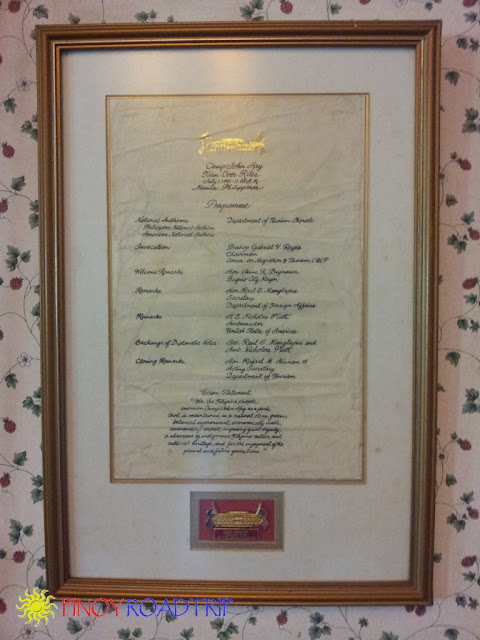 Camp John Hay
Turn Over Rites
July 1, 1991
Manila, Philippines
Programme
National Anthems Department of Tourism Chorale
Philippine National Anthem
American National Anthem
Invocation Bishop Gabriel V. Reyes
Chairman
Comm. on Migration & Tourism, CBCP
Welcome Remarks Hon. Jaime R. Bugnosen
Baguio City Mayor
Remarks Hon. Raul S. Manglapus
Secretary
Department of Foreign Affairs
Remarks H.E. Nicholas Platt
Ambassador
United States of America
Exchange of Diplomatic Notes Sec. Raul S. Manglapus and
Amb. Nicholas Platt
Closing Remarks Hon. Rafael M. Alunan III
Acting Secretary
Department of Tourism
Vision Statement
"We, the Filipino people,
envision Camp John Hay as a park
that is maintained as a natural, clean, green,
balanced environment, economically viable,
commanding respect, inspiring quiet dignity,
a showcase of indigenous Filipino nature, and
cultural heritage, and for the enjoyment of the
present and future generations."
PINOY ROADTRIP